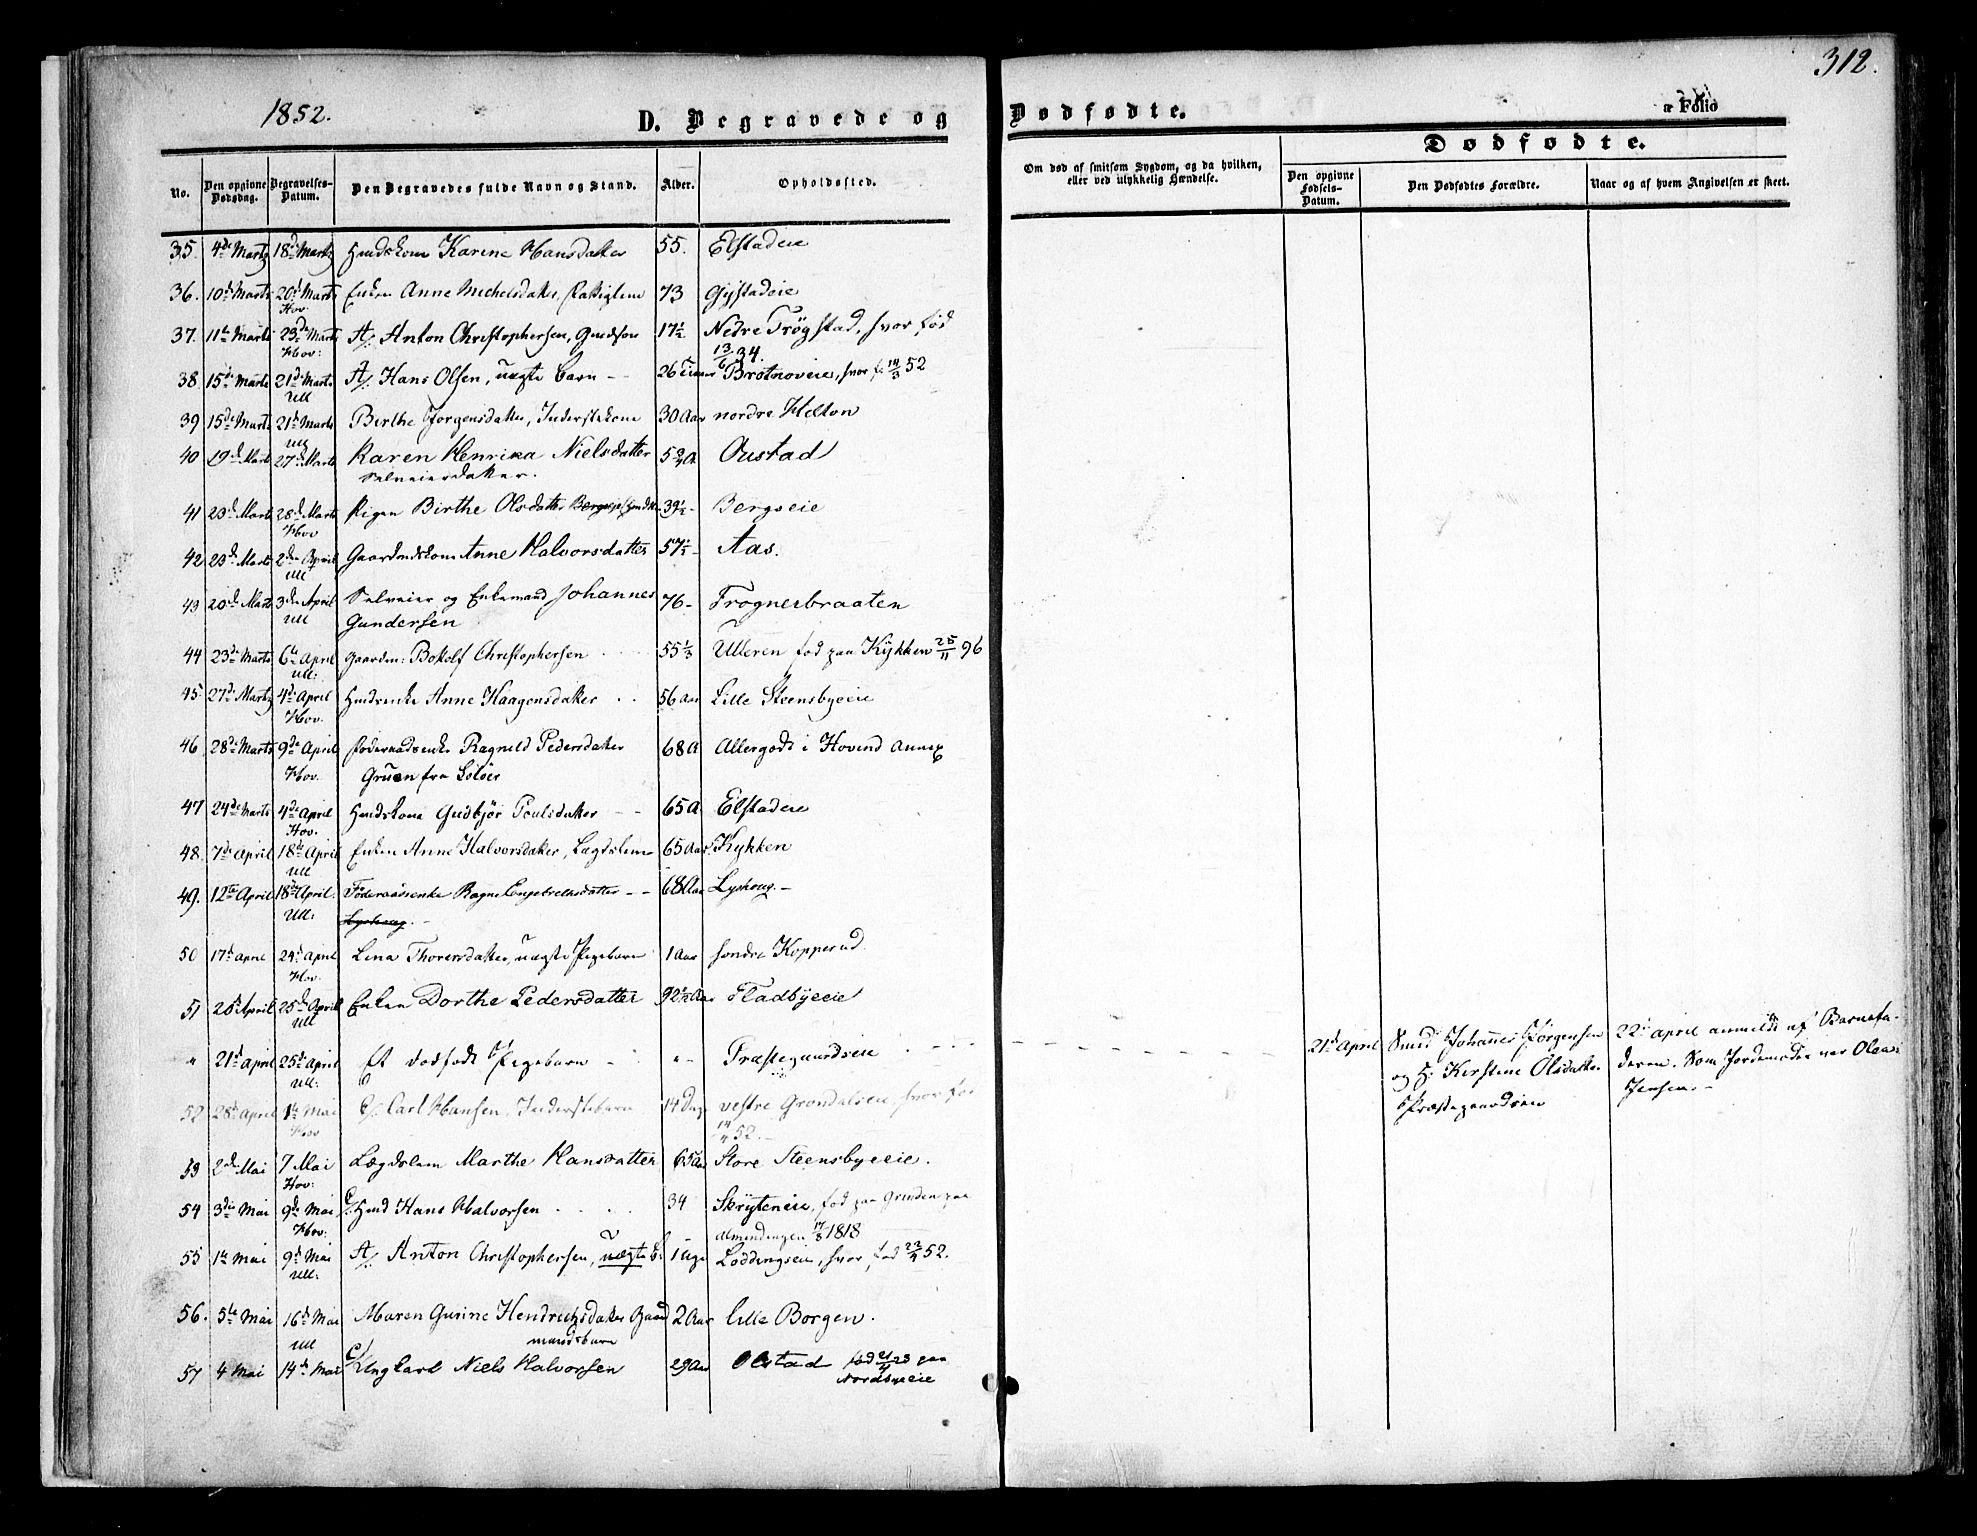 312.
1852.
D. Begravede og Dødfødte.
a Folio
No.
Den opgivne Dødsdag.
Begravelses-Datum.
Den Begravedes fulde Navn og Stand.
Alder.
Opholdssted.
Om død af smitsom Sygdom, og da hvilken, eller ved ulykkelig Hændelse.
Dødfødte.
Den opgivne Fødsels-Datum.
Den Dødfødtes Forældre.
Naar og af hvem Angivelsen er skeet.
35. 4de Martz 18de Martz Karine Hansdatter 55. Elstadeie
36. 10de Marts 20de Marts Enken Anne Michelsdatter, 73 Gjystadeie
Hov.
37. 11te Marts 23de Marts A/. Anton Christophersen, 17½ Nedre Trøgstad, hvor fød
Hov: 13/6 34.
38. 15de Marts 21de Marts A/. Hans Olsen, uægte Barn - - 26 Timer Brotnoveie, hvor f. 14/3 52
Ull
39 15de Marts 21de Marts Birthe Jorgensdatter, Inderstekone 30 Aar nordre Hæton
Ull
40 19de Marts 27de Marts Karen Henrika Nielsdatter Oustad
Selveierdatter.
41 20de Marts 28de Marts Pigen Birthe Olsdatter 39½ - Bergseie
Hov
42 23de Marts 2den April Anne Halvorsdatter 57½ - Aas.
Ull
43 20de Marts 3die April Selveier og Enkemand Johannes 76 - Trognerbraaten
Ull Gundersen
44 23de Marts 6te April Gaardm: Botolf Christophersen 55⅓ Ulleren fød paa Kykken 25/11 96
Ull:
45. 27de Martz 4de April Anne Haagensdatter 56 Aar Lille Steensbyeeie
Hov.
46 28de Marts 9de April Ragnild Pedersdatter 68 A Allergodt i Hovind Annex
Hov. Gruen fra Soløer
47 24de Marts 4de April Gudbjør Poulsdatter - - 65 A Elstadeie
Hov.
48. 7de April 18de April Enken Anne Halvorsdatter, Lægdslem 65 Aar Kykken
Ull
49. 12te April 18de April. Føderaadsenke Ragne Engebrethsdatter - - 68 Aar Lyshaug. -
Ull: Lyshaug. -
50 17de April 24de April Lina Thorersdatter, uægte Pigebarn 1 Aar søndre Kopperud
Hov.
51 20de April 25de April Enken Dorthe Pedersdatter 92½ Aar Fladbyeeie
Ull
" 21de April 25de April Et dødfødt Pigebarn - " - Præstegaardseie
Ull:
21de April
Smed Johannes Jørgensen
og H: Kirstine Olsdatter
Præstegaardseie
22de April anmeldt af Barnefa-
deren. Som Jordemoder var Olea
Jensen. -
52 28de April 1te Mai C/. Carl Hansen, Inderstebarn 14 Dage vestre Grøndalseie, hvor fød
Hov 14/4 52. -
53 2den Mai 7 Mai Lægdslem Marthe Hansdatter 65 Aar Store Steensbyeeie.
Hov:
54 3die Mai 9de Mai C/. Hans Halvorsen - 34 Skryteneie, fød paa Grinden paa
Hov: Almendingen 17/8 1818
55 1te Mai 9de Mai A/. Anton Christophersen, uægte B: 1 Uge Løddingseie, hvor fød 23/4 52.
Ull:
56. 5te Mai 16de Mai Maren Gurine Hendrichsdatter Gaard 2 Aar Lille Borgen.
Ull mandsbarn
57 4 Mai 14de Mai C/. Ungkarl Niels Halvorsen 29 Aar Olstad fød paa
Nordbyeeie